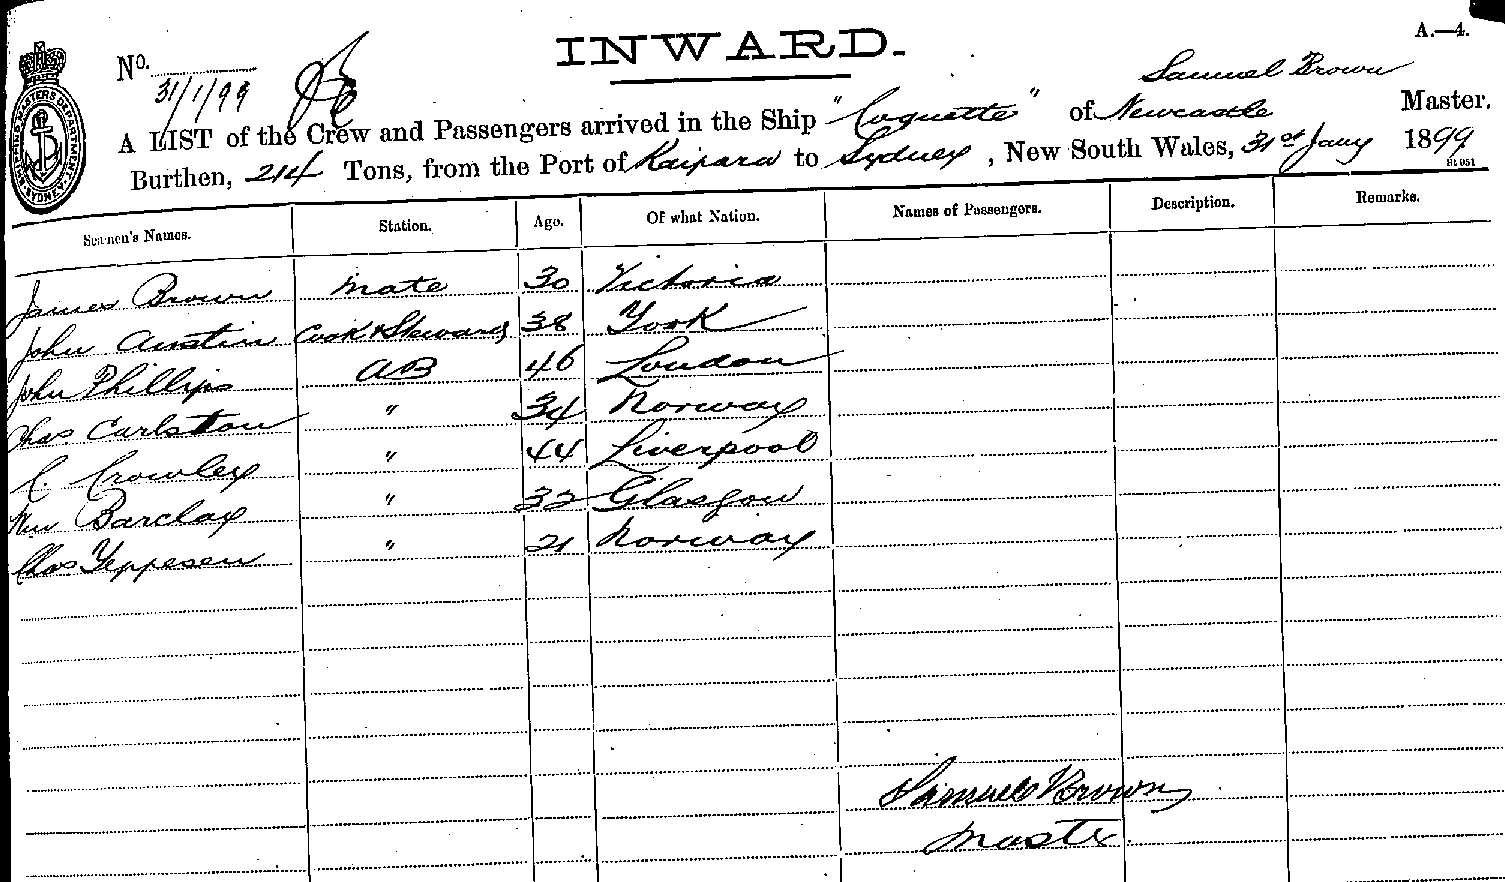 INWARD.
A.—4.
No.
31/1/99
Samuel Brown
A LIST of the Crew and Passengers arrived in the Ship "Coquette" of Newcastle Master.
Burthen, 214 Tons, from the Port of Kaipara to Sydney, New South Wales, 31st Jany 1899
Seamen's Names. Station. Age. Of what Nation. Names of Passengers. Description. Remarks.
James Brown Mate 30 Victoria
John Austin Cook & Steward 38 York
John Phillips AB 46 London
Chas Carlston " 34 Norway
C. Crowley " 44 Liverpool
Wm Barclay " 32 Glasgow
Chas Yeppesen " 21 Norway
Samuel Brown
Master